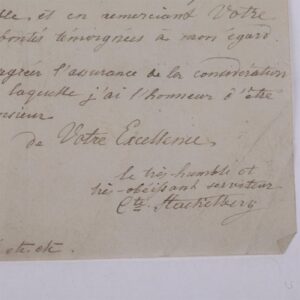 et en remerciant Votre
bontés témoignées à mon égard.
agréer l'assurance de la considération
laquelle j'ai l'honneur d'être
nsieur
de Votre Excellence,
le très humble et
très-obéissant serviteur
Cte. Stackelberg
etc. etc.